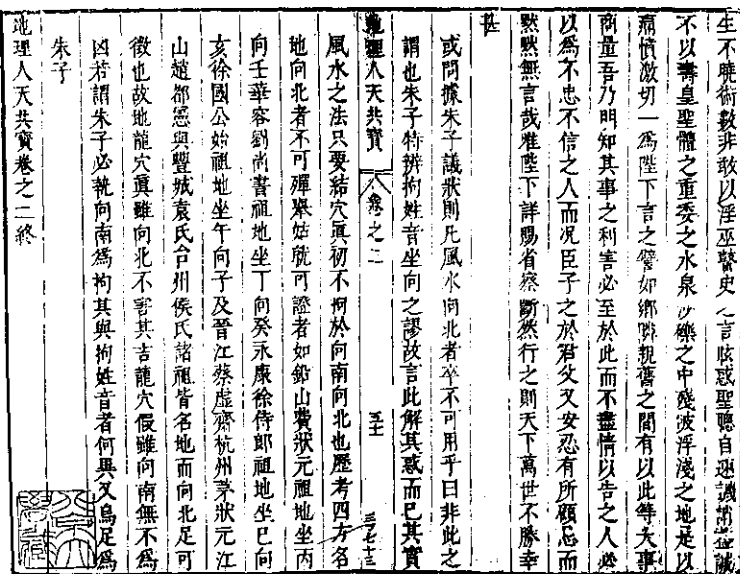 生不曉術數非敢以淫巫瞽史之言眩惑聖聽自速譏誚蓋誠
不以壽皇聖體之重委之水泉沙礫之中殘破浮淺之地是以
痛憤激切一為陛下言之譬如鄉鄰親舊之間有以此等大事
商量吾乃明知其事之利害必至於此而不盡情以告之人必
以為不忠不信之人而況臣子之於君父又安忍有所顧忌而
默默無言哉惟陛下詳賜省察斷然行之則天下萬世不勝幸
甚
或問據朱子議狀則凡風水向北者卒不可用乎曰非此之
謂也朱子特辨拘姓音坐向之謬故言此解其惑而已其實
地理人天共寶 卷之二 五十
風水之法只要結穴眞初不拘於向南向北也歷考四方名
地向北者不可殫舉姑就可證者如鉛山費狀元祖地坐丙
向壬華容劉尚書祖地坐丁向癸永康徐侍郎祖地坐巳向
亥徐國公始祖地坐午向子及晉江蔡虛齋杭州茅狀元江
山趙都憲與豐城袁氏台州侯氏諸祖皆名地而向北足可
徵也故地龍穴眞雖向北不害其吉龍穴假雖向南無不為
凶若謂朱子必執向南為拘其與拘姓音者何異又烏足為
朱子
地理人天共寶卷之二終